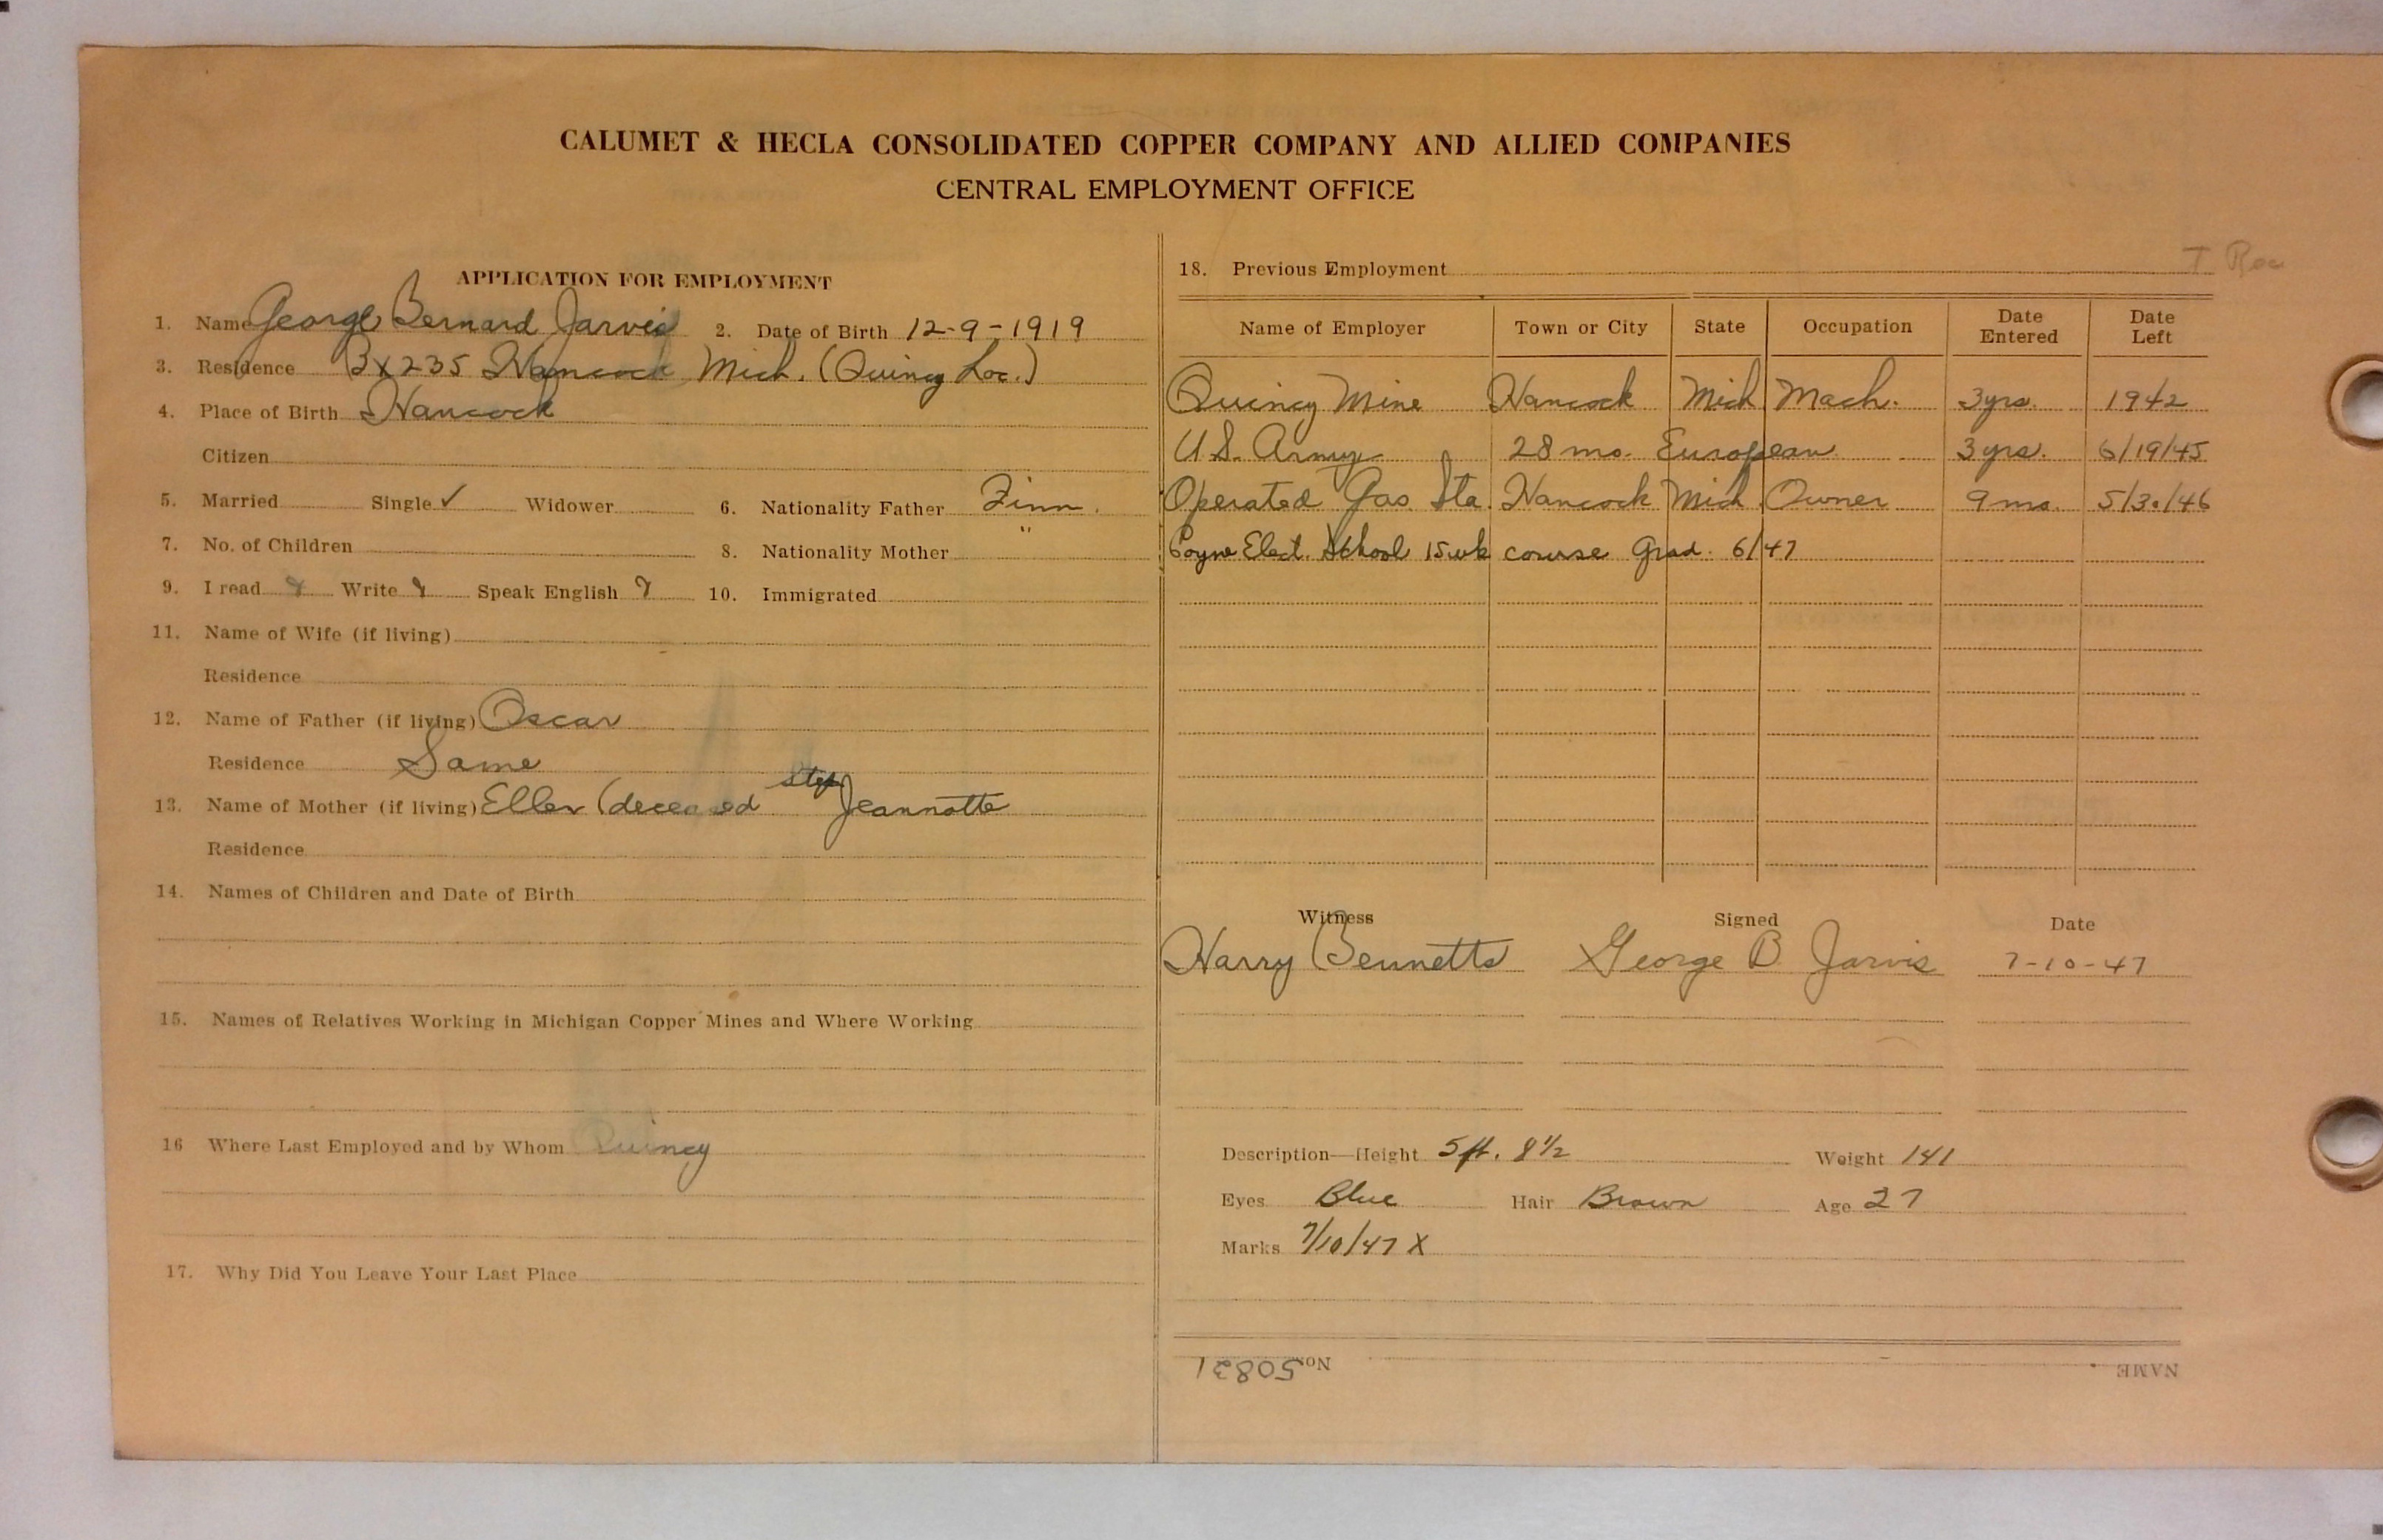 CALUMET & HECLA CONSOLIDATED COPPER COMPANY AND ALLIED COMPANIES
CENTRAL EMPLOYMENT OFFICE
APPLICATION FOR EMPLOYMENT
1. Name George Bernard Jarvis 2. Date of Birth 12-9-1919
3. Residence Bx 235 Hancock Mich. (Quincy Loc.)
4. Place of Birth Hancock
Citizen
5. Married Single ✓ Widower 6. Nationality Father Finn.
7. No. of Children 8. Nationality Mother "
9. I read y Write y Speak English y 10. Immigrated
11. Name of Wife (if living)
Residence
12. Name of Father (if living) Oscar
Residence Same
13. Name of Mother (if living) Ellen (deceased step Jeannotte
Residence
14. Names of Children and Date of Birth
15. Names of Relatives Working in Michigan Copper Mines and Where Working
16 Where Last Employed and by Whom Quincy
17. Why Did You Leave Your Last Place
18. Previous Employment T Rec
Name of Employer Town or City State Occupation Date Entered Date Left
Quincy Mine Hancock Mich Mach. 3yrs. 1942
U.S. Army 28 mo. European 3yrs. 6/19/45
Operated Gas Sta. Hancock Mich Owner 9 mo. 5/30/46
Coyne Elect. School 15wk course Grad. 6/47
Witness Signed Date
Harry Bennetts George B Jarvis 7-10-47
Description—Height 5 ft. 8 1/2 Weight 141
Eyes Blue Hair Brown Age 27
Marks 7/10/47 X
NAME No. 50821